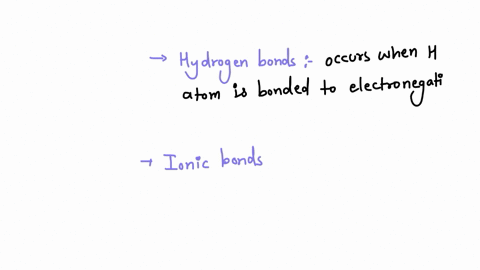 → Hydrogen bonds :- occurs when H
atom is bonded to electronegati
→ Ionic bonds